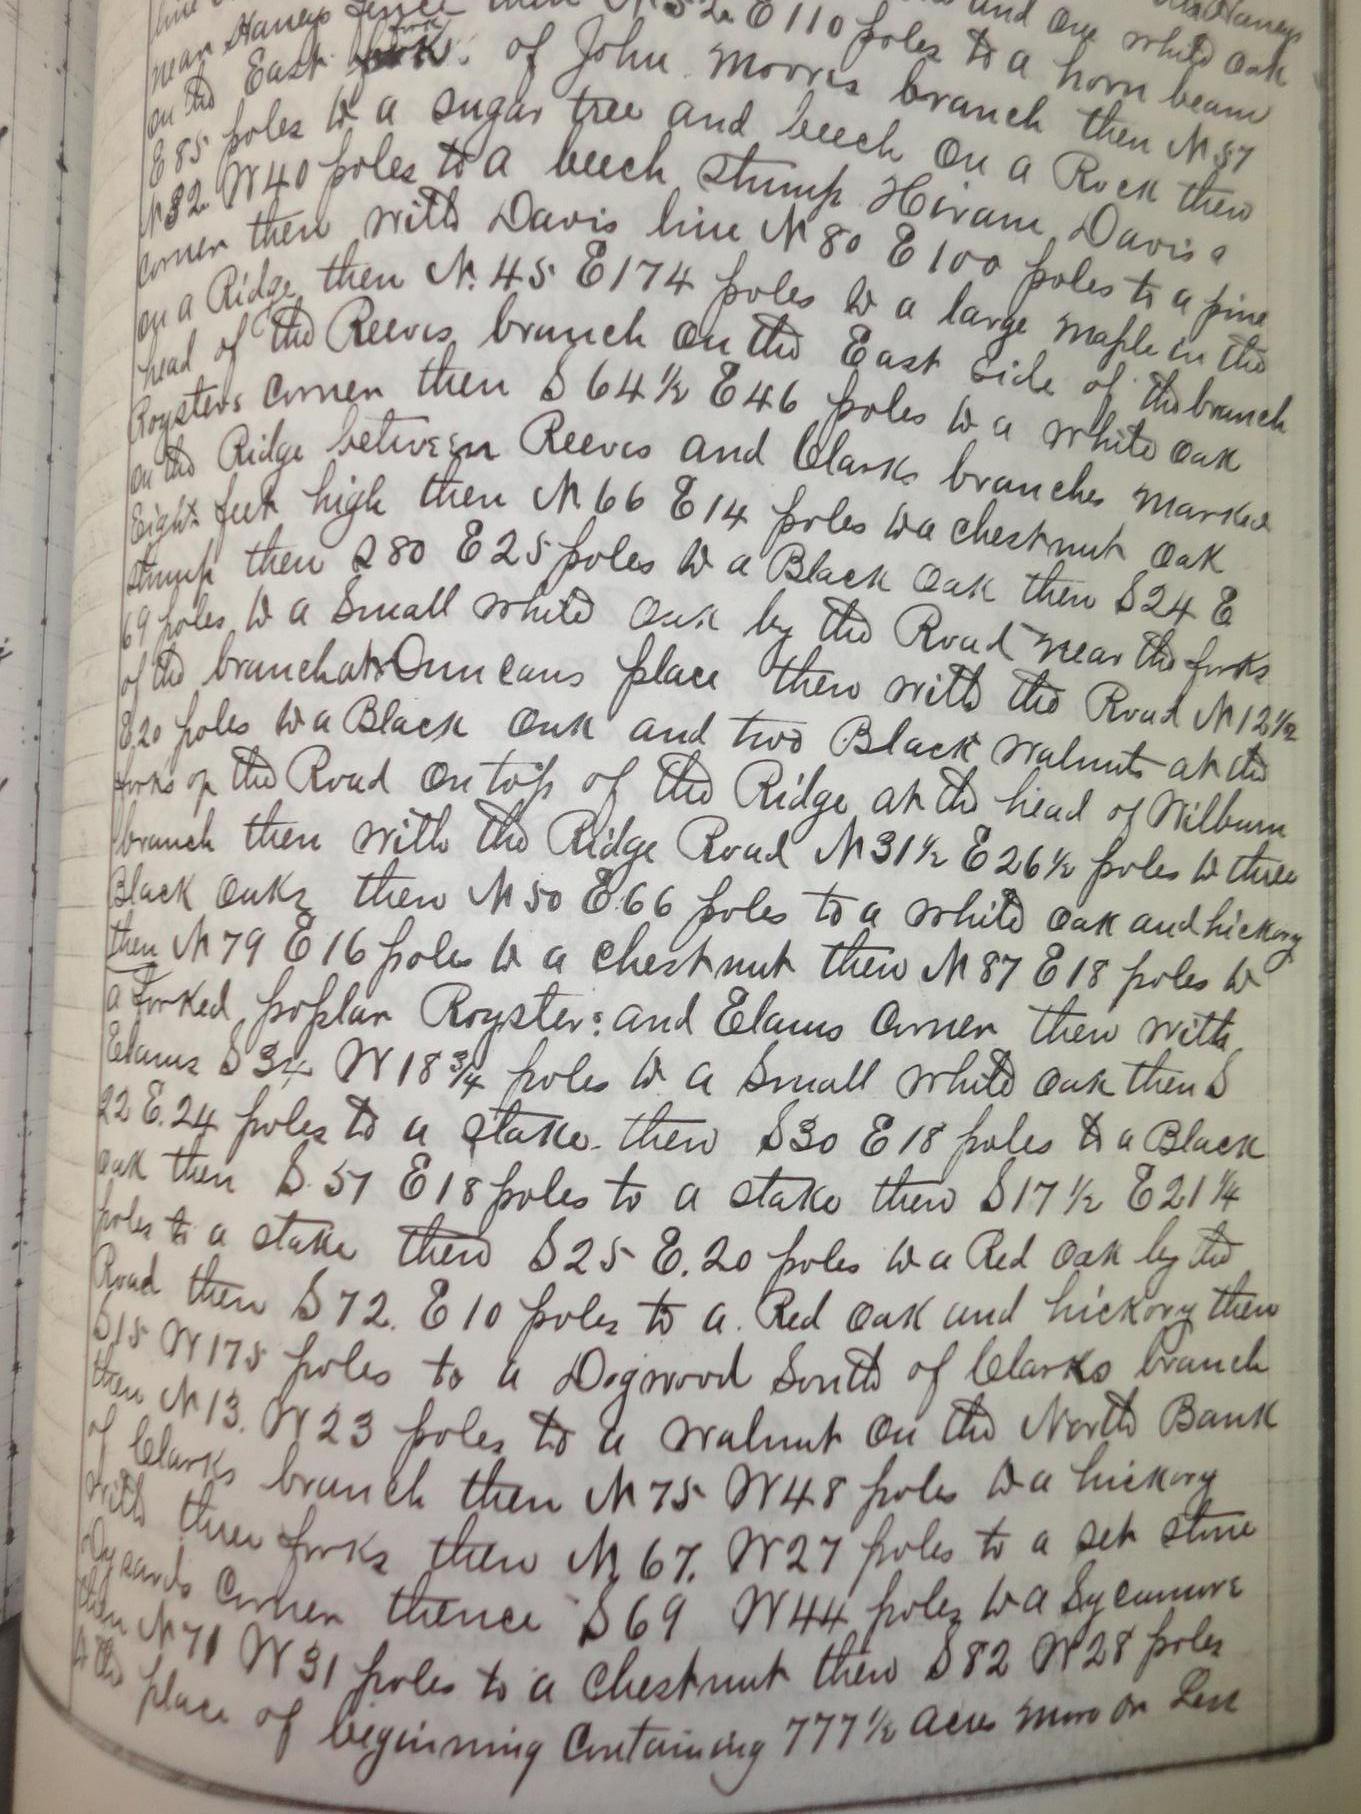 line and one white oak
near Haneys fence then N 52 E 110 poles to a horn beam
on the East fork of John Morris branch then N 57
E 85 poles to a sugar tree and beech on a Rock then
N 32 W 40 poles to a beech stump Hiram Davis
corner then with Davis line N 80 E 100 poles to a pine
on a Ridge then N. 45 E 174 poles to a large maple in the
head of the Reeves branch on the East side of the branch
Roysters corner then S 64 1/2 E 46 poles to a white oak
on the Ridge between Reeves and Clarks branches marked
Eight feet high then N 66 E 14 poles to a chestnut oak
stump then S 80 E 25 poles to a Black oak then S 24 E
69 poles to a small white oak by the Road near the forks
of the branch at Duncans place then with the Road N 12 1/2
E 20 poles to a Black oak and two Black walnuts at the
forks of the Road on top of the Ridge at the head of Wilburn
branch then with the Ridge Road N 31 1/2 E 26 1/2 poles to three
Black oaks then N 50 E 66 poles to a white oak and hickory
then N 79 E 16 poles to a chestnut then N 87 E 18 poles to
a forked poplar Roysters and Elams corner then with
Elams S 34 W 18 3/4 poles to a small white oak then S
22 E. 24 poles to a stake then S 30 E 18 poles to a Black
oak then S. 51 E 18 poles to a stake then S 17 1/2 E 21 1/4
poles to a stake then S 25 E. 20 poles to a Red oak by the
Road then S 72. E 10 poles to a Red oak and hickory then
S 15 W 175 poles to a Dogwood South of Clarks branch
then N 13. W 23 poles to a walnut on the North Bank
of Clarks branch then N 75 W 48 poles to a hickory
with three forks then N 67. W 27 poles to a set stone
Dysards corner thence S 69 W 44 poles to a Sycamore
then N 71 W 31 poles to a chestnut then S 82 W 28 poles
to the place of beginning containing 777 1/2 acres more or Less